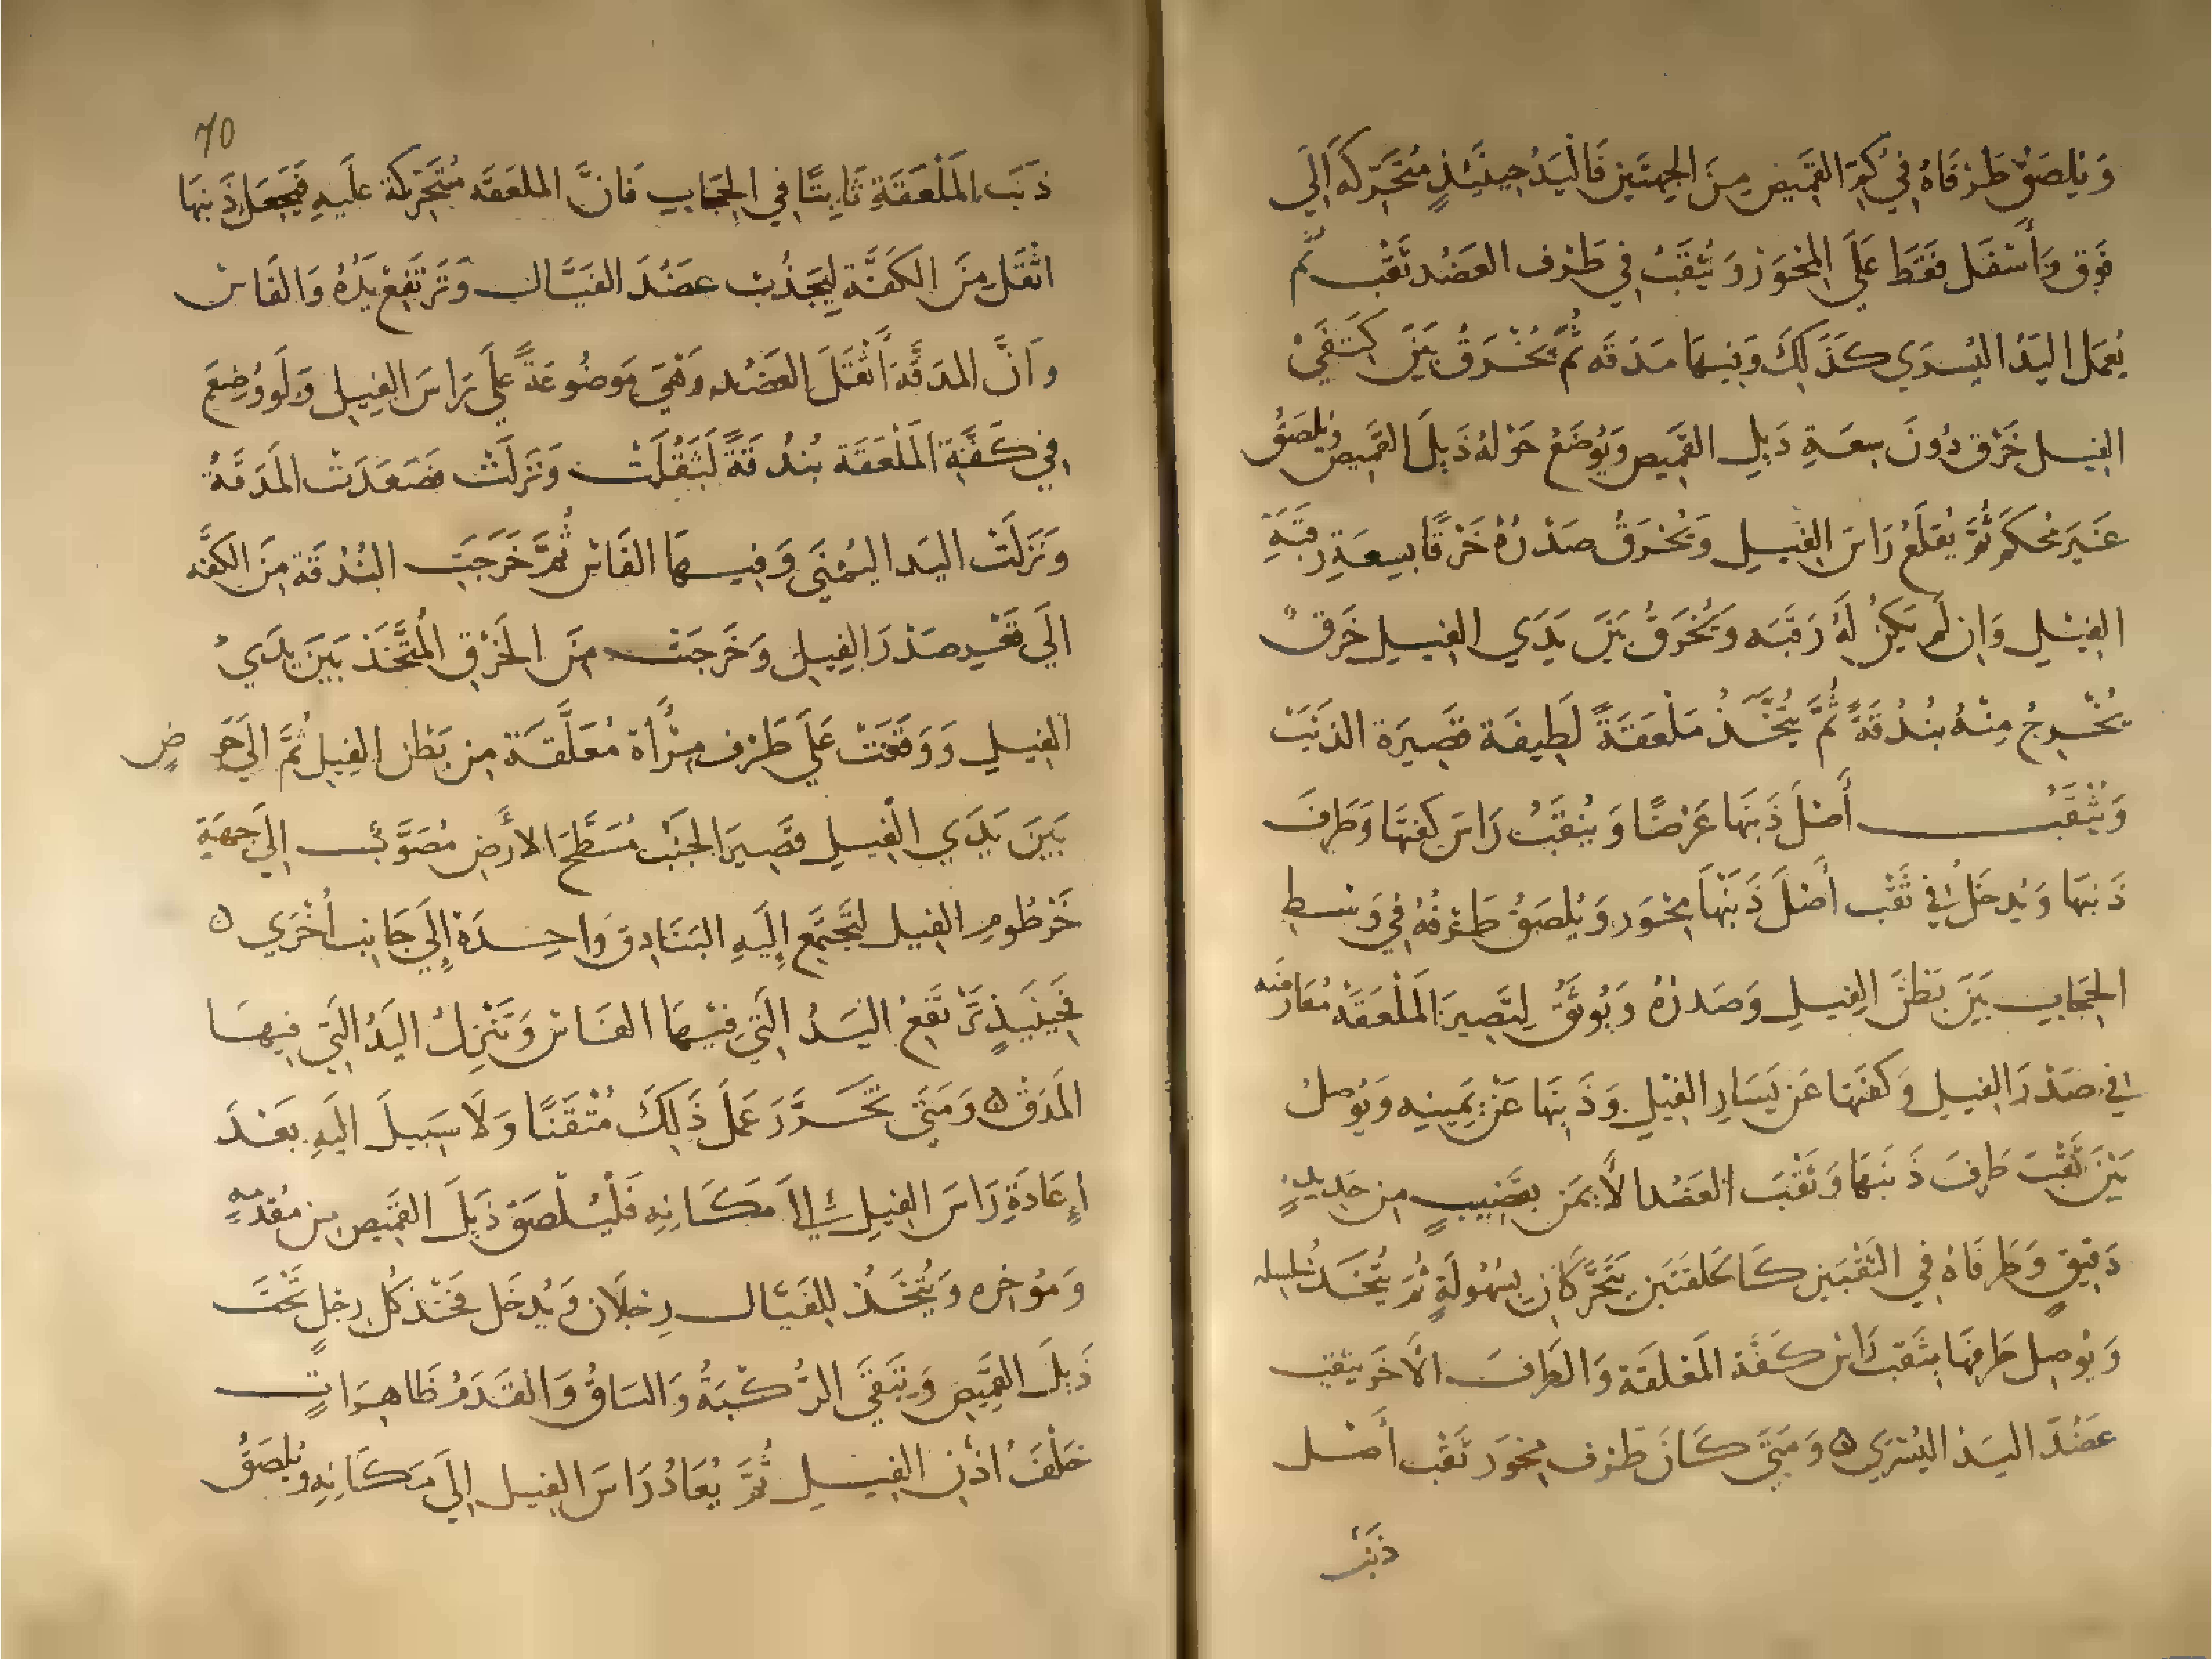 وَيُلصَقُ طَرَفَاهُ فِي كُمِّ القَمِيصِ مِنَ الجِهَتَيْنِ فَاليَدُ حِينَئِذٍ مُتَحَرِّكَةٌ اِلَى
فَوق وَأَسْفَل فَقَط عَلَى المِحْوَر وَيُثقَبُ فِي طَرَف العَضُد ثَقْب ثُم
يُعمَل اليَدُ اليُسرَي كَذَلِكَ وَفِيهَا مَدَقَه ثُمَّ يُخْرَقُ بَيْنَ كَتَفَيْ
الفِيل خَرْق دُونَ سِعَةِ ذَيلِ القَمِيص وَيُوضَعُ حَوْلَهُ ذَيلَ القَمِيص وَيُلصَقُ
غَيرَ مُحكَم ثُمَّ يُقلَعُ رَاسَ الفِيلِ وَيُخرَقُ صَدْرُهُ خَرْقًا بِسِعَةِ رَقَبَةِ
الفِيلِ وَاِن لَم يَكُنْ لَهُ رَقَبَه وَيُخْرَقُ بَيْنَ يَدَي الفِيلِ خَرقٌ
يَخْرجُ مِنْهُ بُنْدُقَةً ثُمَّ يُتَّخَذُ مَلْعَقَةً لَطِيفَة قَصِيرَة الذَنَبْ
وَيُثْقَبُ أَصْلَ ذَنَبهَا عَرْضًا وَيُثقَبُ رَاسَ كفتهَا وَطَرفَ
ذَنَبهَا وَيُدخَلُ فِي ثَقْب أَصْلَ ذَنَبْهَا مِحْوَر وَيُلصَقُ طَرَفُهُ فِي وَسَطِ
الحِجَابِ بَيْنَ بَطْنَ الفِيلِ وَصَدرُهُ وَيُوثَقُ لِتَصِيرَ المَلْعَقَهْ مُعَارضَه
فِي صَدْرَ الفِيلِ وَكفتهَا عَن يَسَارِ الفِيلِ وَذَنَبهَا عَنْ يَمِينِهِ وَيُوصلُ
بَيْنَ ثَقْبَ طَرفَ ذَنَبَهَا وَثَقْبَ العَضُد الأَيمَن بِقَضِيبٍ مِن حَدِيدٍ
دَقيقٍ وَطَرفَاهُ فِي الثقْبَيْن كَالحَلقتَيْن يَتَحَرَّكَانِ بِسُهُولَةٍ ثُمَّ يُتَّخَذُ سلسله
وَيُوصِل طَرفهَا بِثَقب رَاسْ كَفَّة المَلعَقَة وَالطَرَفَ الأَخَر بِثقب
عَضُدَ اليَدَ اليُسْرَي ه وَمَتَى كَانَ طَرَف مِحوَر ثَقْب أَصْل
ذَنَبْ
70
ذَنَب المَلْعَقَةِ ثَابِتًا فِي الحِجَابِ فَانَّ الملعَقَه مُتَحَرّكَة عَلَيهِ فَيَجْعَل ذَنبهَا
اثْقَل مِنَ الكَفَّة لِيَجْذُبْ عضُدَ الفَيَّال وَتَرتَفِعْ يَدُهُ وَالفَاسْ
وَانَّ المدَقَّةَ أَثْقَلَ العَضُد وَهِيَ مَوضُوعَةً عَلَى رَاسَ الفِيلِ وَلَو وُضِعَ
فِي كَفَّةِ المَلْعَقَة بُنْدُقَةً لَثَقُلَتْ وَنَزلَتْ فصَعَدَتْ المَدَقَّةُ
وَنَزَلَتْ اليَد اليُمْنَى وَفِيهَا الفَاسْ ثُمَّ خَرَجَتِ البُنْدُقَة مِنَ الكفَّه
الَى قَعْرِ صَدْرَ الفِيلِ وَخَرجَتْ مِنَ الخَرْقِ المُتَّخَذ بَيْنَ يَدَيْ
الفِيلِ وَوَقَعَتْ عَلَى طَرَف مِرْأَة مُعَلَّقَة مِن بَطْن الفِيل ثُمَّ الَى حَو ضٍ
بَيْنَ يَدَي الفِيلِ قَصِيرَ الجَنْب مُسَطَّحَ الأَرْضِ مُصَوَّب اِلَى جِهَةِ
خَرْطُومِ الفِيل لتَجَّمَع اِلَيهِ البَنَادِق وَاحِدَةً اِلَى جَانِب أُخْرَي ه
فَحِينَيذٍ تَرْتَفعُ اليَدُ الَّتِي فِيْهَا الفَاسْ وَتَنْزِلُ اليَدُ الَّتِي فِيهَا
المَدَقْ ه وَمَتَى تَحَرَّرَ عَمَلَ ذَلِكَ مُتْقَنًا وَلَا سَبِيلَ الَيهِ بَعْدَ
اِعَادَةِ رَاسَ الفِيلِ اِلَى مَكَانِهِ فَلْيُلْصَقْ ذَيلَ القَمِيص مِن مُقدّمِهِ
وَمُؤخرِه وَيُتَّخَذُ لِلفَيَّال رِجْلَان وَيُدخَل فَخْذ كُل رِجْلٍ تَحْتَ
ذَيلَ القَمِيصِ وَتَبْقَى الرُّكْبَةُ وَالسَاقُ وَالقَدَمُ ظَاهِرَاتٍ
خَلْفَ اُذْنِ الفِيلِ ثُمَّ يُعَادُ رَاسَ الفِيل اِلَى مَكَانِهِ وَيُلصَقُ